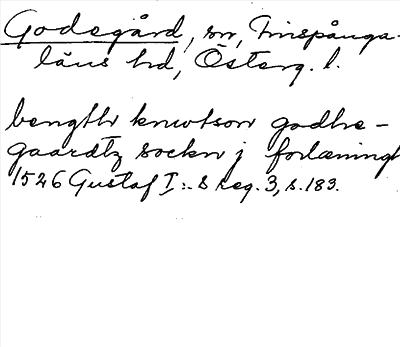 Godegård, sn, Finspånga-
läns hd, Österg. l.
bength knwtson godhe-
gaardtz sockn j forlæningh
1526 Gustaf I:s Reg. 3, s. 183.